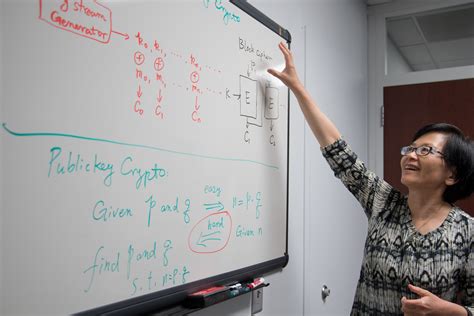 Crypto
stream
Generator
k₀, k₁, ... kₙ, ...
⊕ ⊕ ⊕
m₀ m₁ mₙ
C₀ C₁ C₀
Block
K E E
C₁ C₂
Publickey Crypto:
Given p and q easy n = p·q
hard Given n
find p and q
s.t. n=p·q